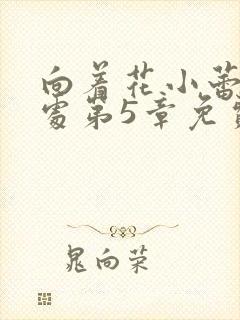 向着花小蕾
处第5章免费
晁向荣